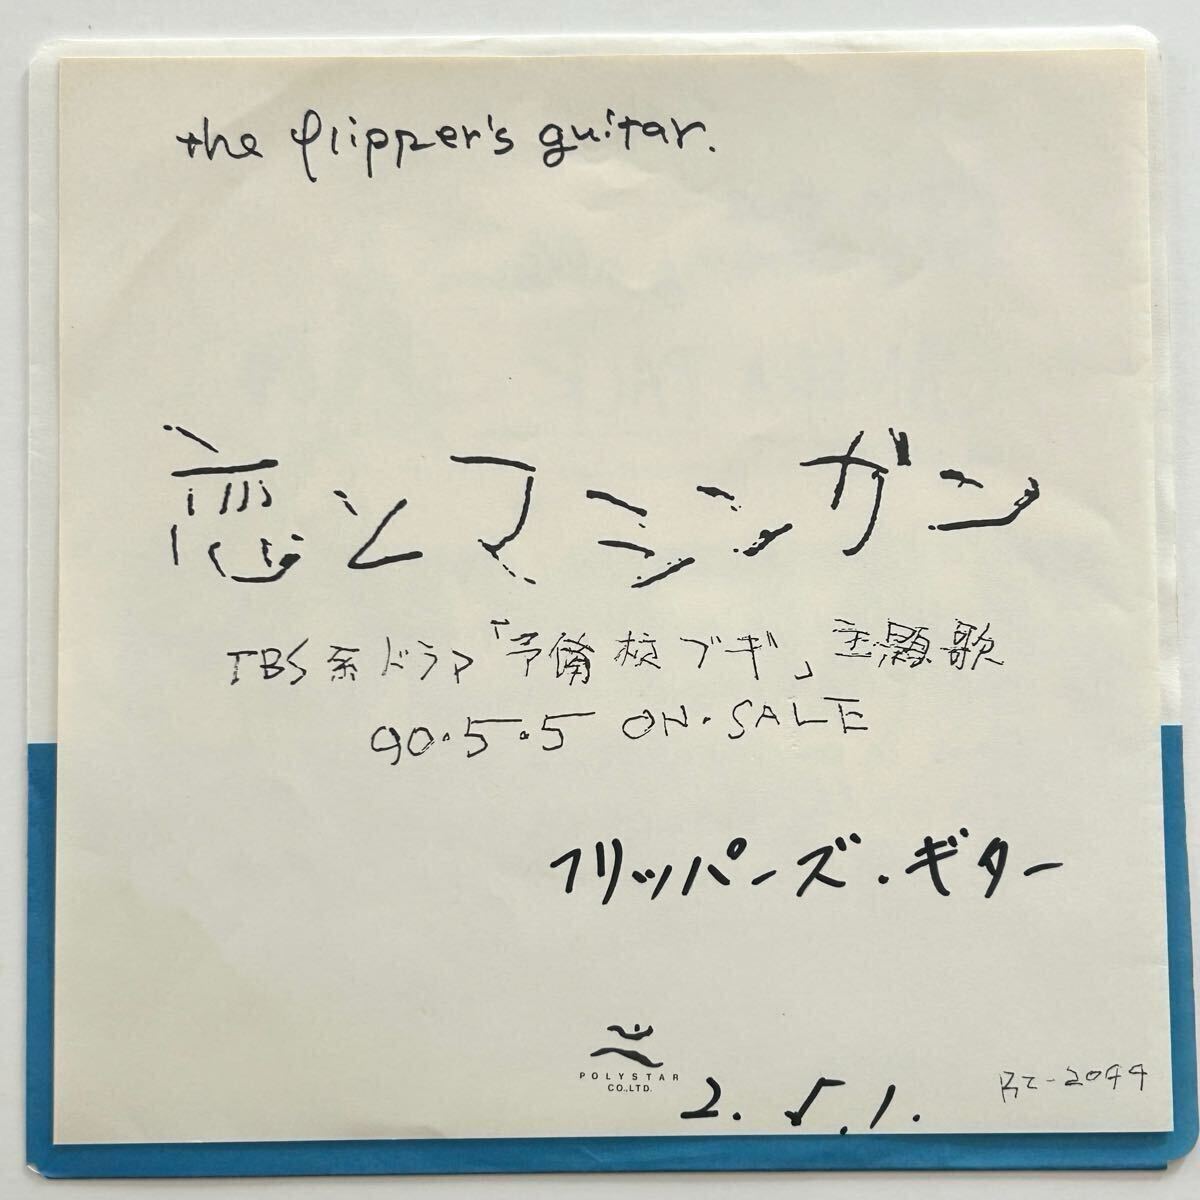 the flipper's guitar.
恋とマシンガン
TBS系ドラマ「予備校ブギ」主題歌
90.5.5 ON.SALE
フリッパーズ・ギター
POLYSTAR
CO.,LTD.
2.5.1.